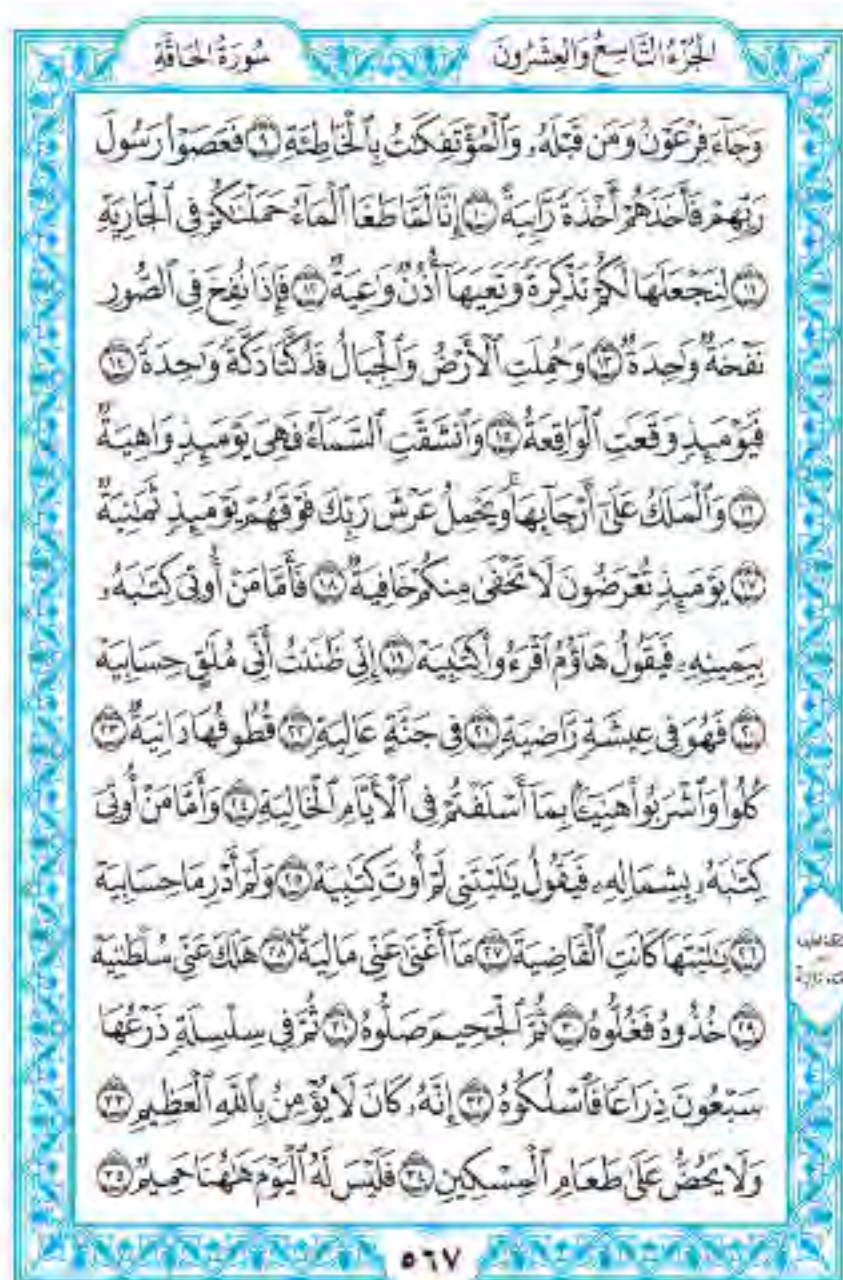 الجُزْءُ التَّاسِعُ وَالعِشْرُونَ
سُورَةُ الحَاقَّةِ
وَجَآءَ فِرْعَوْنُ وَمَن قَبْلَهُۥ وَٱلْمُؤْتَفِكَٰتُ بِٱلْخَاطِئَةِ ٩ فَعَصَوْا۟ رَسُولَ
رَبِّهِمْ فَأَخَذَهُمْ أَخْذَةً رَّابِيَةً ١٠ إِنَّا لَمَّا طَغَا ٱلْمَآءُ حَمَلْنَٰكُمْ فِى ٱلْجَارِيَةِ
١١ لِنَجْعَلَهَا لَكُمْ تَذْكِرَةً وَتَعِيَهَآ أُذُنٌ وَٰعِيَةٌ ١٢ فَإِذَا نُفِخَ فِى ٱلصُّورِ
نَفْخَةٌ وَٰحِدَةٌ ١٣ وَحُمِلَتِ ٱلْأَرْضُ وَٱلْجِبَالُ فَدُكَّتَا دَكَّةً وَٰحِدَةً ١٤
فَيَوْمَئِذٍ وَقَعَتِ ٱلْوَاقِعَةُ ١٥ وَٱنشَقَّتِ ٱلسَّمَآءُ فَهِىَ يَوْمَئِذٍ وَاهِيَةٌ
١٦ وَٱلْمَلَكُ عَلَىٰٓ أَرْجَآئِهَا ۚ وَيَحْمِلُ عَرْشَ رَبِّكَ فَوْقَهُمْ يَوْمَئِذٍ ثَمَٰنِيَةٌ
١٧ يَوْمَئِذٍ تُعْرَضُونَ لَا تَخْفَىٰ مِنكُمْ خَافِيَةٌ ١٨ فَأَمَّا مَنْ أُوتِىَ كِتَٰبَهُۥ
بِيَمِينِهِۦ فَيَقُولُ هَآؤُمُ ٱقْرَءُوا۟ كِتَٰبِيَهْ ١٩ إِنِّى ظَنَنتُ أَنِّى مُلَٰقٍ حِسَابِيَهْ
٢٠ فَهُوَ فِى عِيشَةٍ رَّاضِيَةٍ ٢١ فِى جَنَّةٍ عَالِيَةٍ ٢٢ قُطُوفُهَا دَانِيَةٌ ٢٣
كُلُوا۟ وَٱشْرَبُوا۟ هَنِيٓـًٔۢا بِمَآ أَسْلَفْتُمْ فِى ٱلْأَيَّامِ ٱلْخَالِيَةِ ٢٤ وَأَمَّا مَنْ أُوتِىَ
كِتَٰبَهُۥ بِشِمَالِهِۦ فَيَقُولُ يَٰلَيْتَنِى لَمْ أُوتَ كِتَٰبِيَهْ ٢٥ وَلَمْ أَدْرِ مَا حِسَابِيَهْ
٢٦ يَٰلَيْتَهَا كَانَتِ ٱلْقَاضِيَةَ ٢٧ مَآ أَغْنَىٰ عَنِّى مَالِيَهْ ۜ ٢٨ هَلَكَ عَنِّى سُلْطَٰنِيَهْ
٢٩ خُذُوهُ فَغُلُّوهُ ٣٠ ثُمَّ ٱلْجَحِيمَ صَلُّوهُ ٣١ ثُمَّ فِى سِلْسِلَةٍ ذَرْعُهَا
سَبْعُونَ ذِرَاعًا فَٱسْلُكُوهُ ٣٢ إِنَّهُۥ كَانَ لَا يُؤْمِنُ بِٱللَّهِ ٱلْعَظِيمِ ٣٣
وَلَا يَحُضُّ عَلَىٰ طَعَامِ ٱلْمِسْكِينِ ٣٤ فَلَيْسَ لَهُ ٱلْيَوْمَ هَٰهُنَا حَمِيمٌ ٣٥
٥٦٧